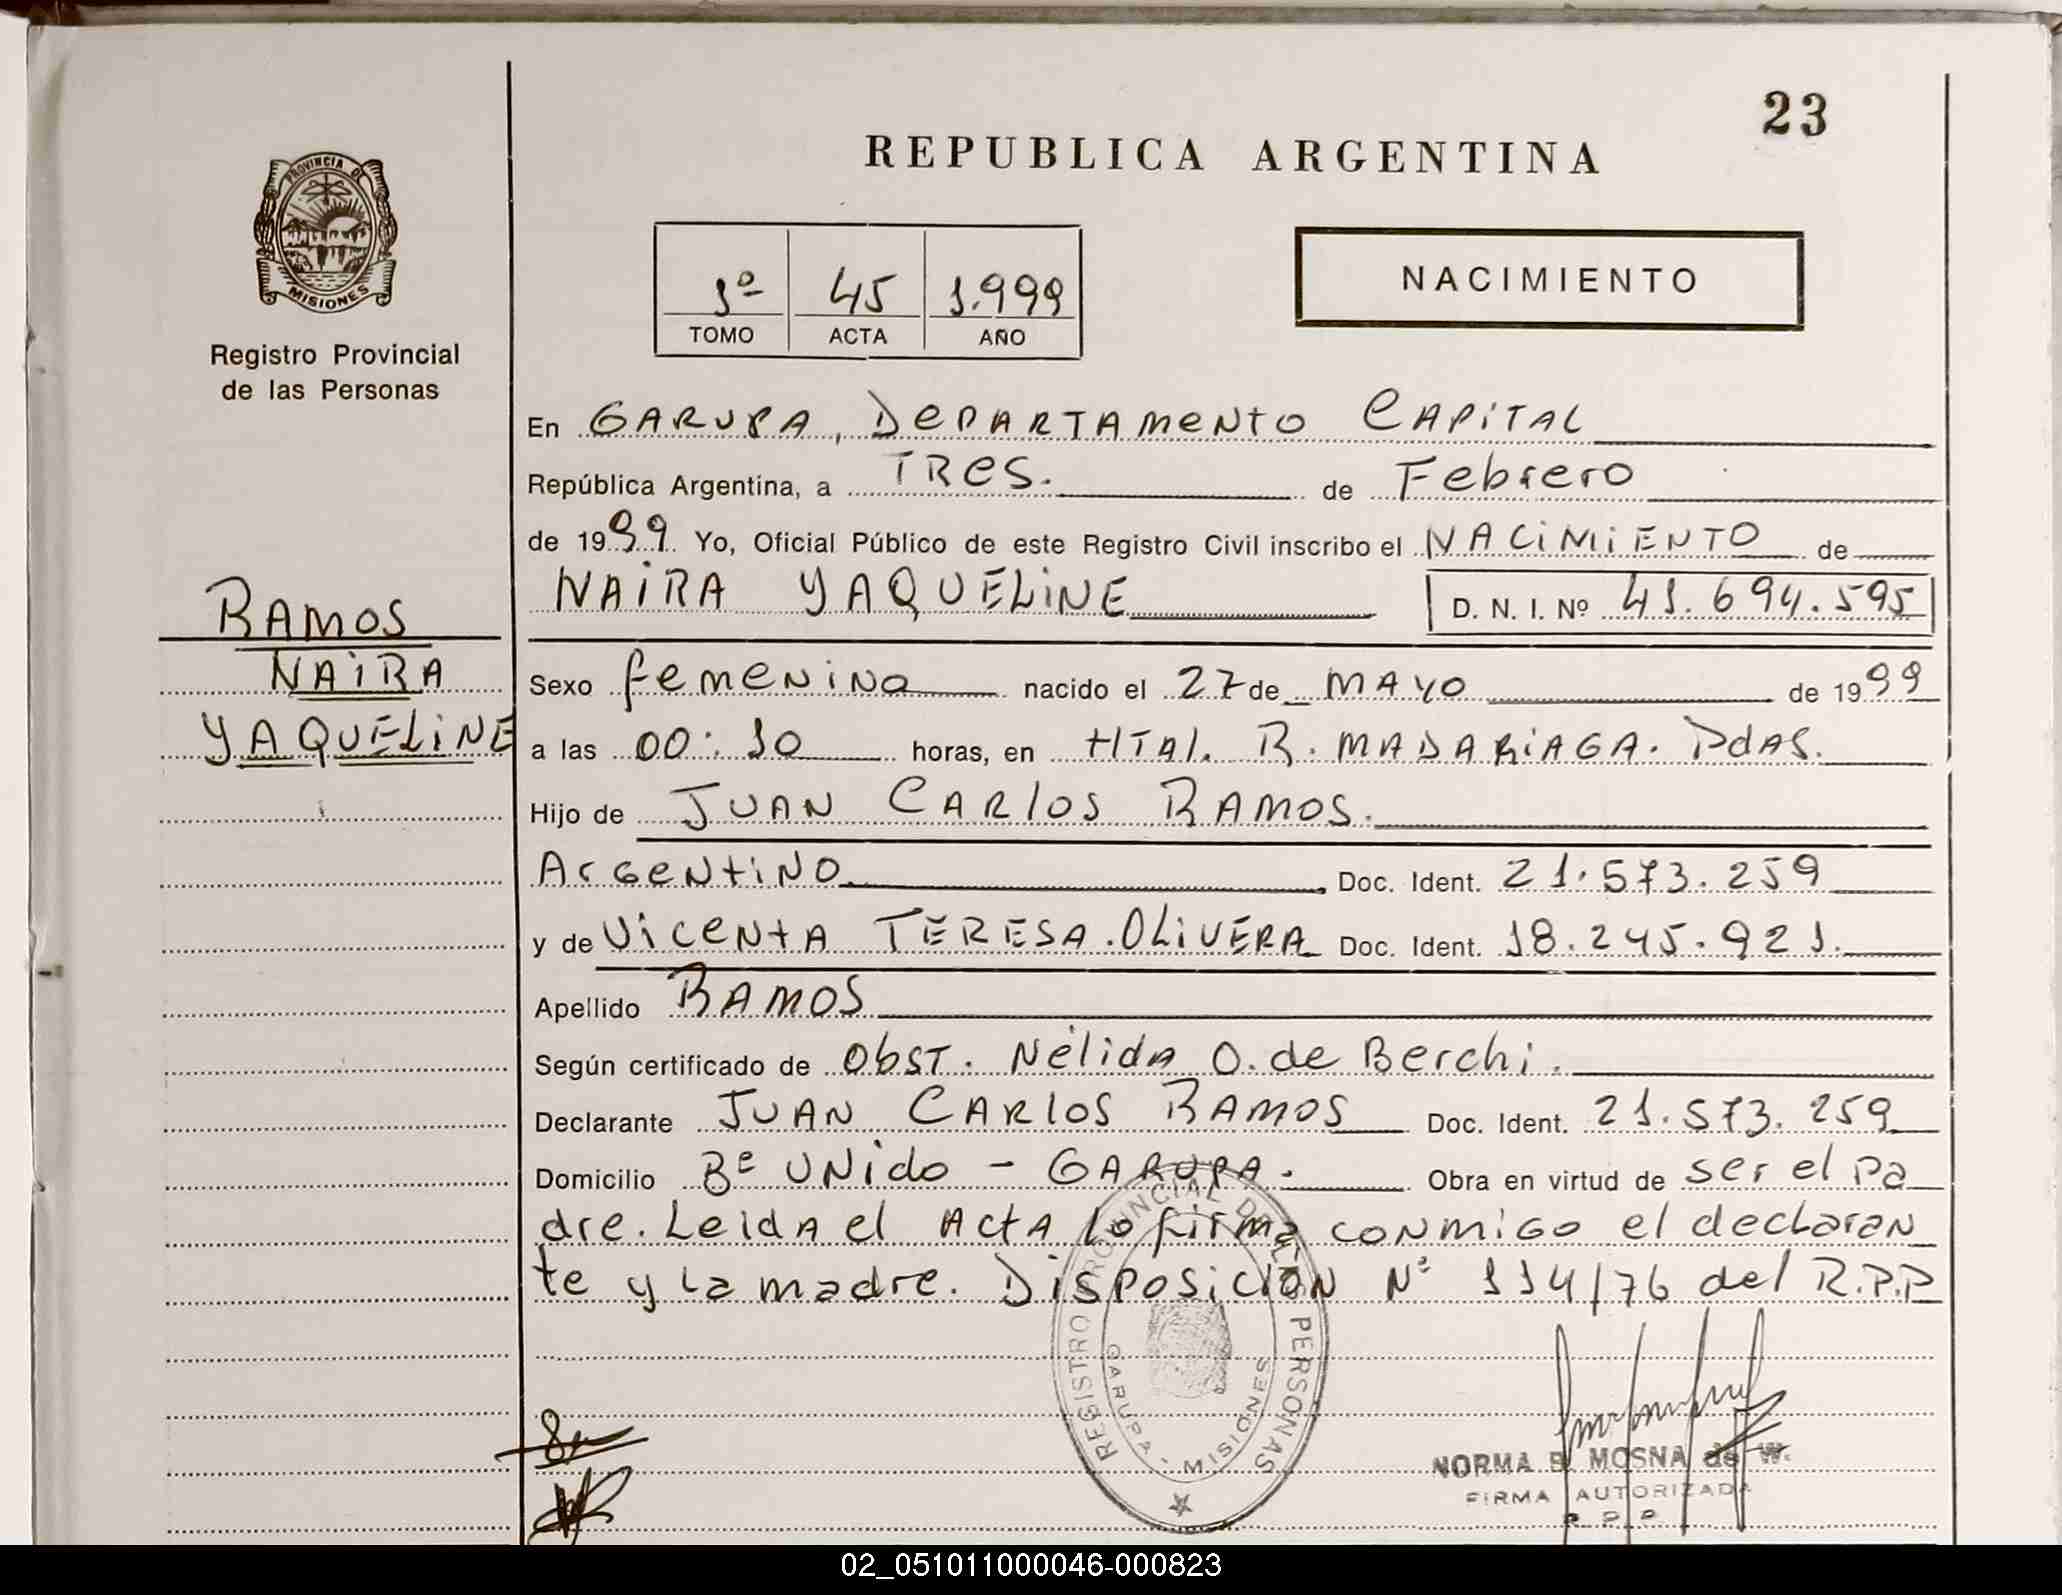 23
REPUBLICA ARGENTINA
PROVINCIA DE
MISIONES
Registro Provincial
de las Personas
1º 45 1.999
TOMO ACTA AÑO
NACIMIENTO
En GARUPA, DePARTAmeNtO CAPiTAL
República Argentina, a TRes. de Febrero
de 1999 Yo, Oficial Público de este Registro Civil inscribo el NACiMiENTO de
NAiRA YAQUELiNE D. N. I. Nº 41.694.595
RAMOS
NAiRA
YAQUELiNE
Sexo femeNiNo nacido el 27 de MAYO de 1999
a las 00:10 horas, en HTAl. R. MADARiAGA. PdAS.
Hijo de JUAN CARlOS RAMOS.
ArGeNtiNO Doc. Ident. 21.573.259
y de ViceNtA TERESA.OLiVERA Doc. Ident. 18.245.921.
Apellido RAMOS
Según certificado de ObST. Nélida O. de Berchi.
Declarante JUAN CARlOS RAMOS Doc. Ident. 21.573.259
Domicilio Bº UNido - GARUPA. Obra en virtud de ser el pa
dre. Leida el Acta lo firma conmigo el declaran
te y La madre. Disposición Nº 114/76 del R.P.P
REGISTRO PROVINCIAL DE LAS PERSONAS
GARUPA - MISIONES
NORMA B. MOSNA de W.
FIRMA AUTORIZADA
R P P
02_051011000046-000823